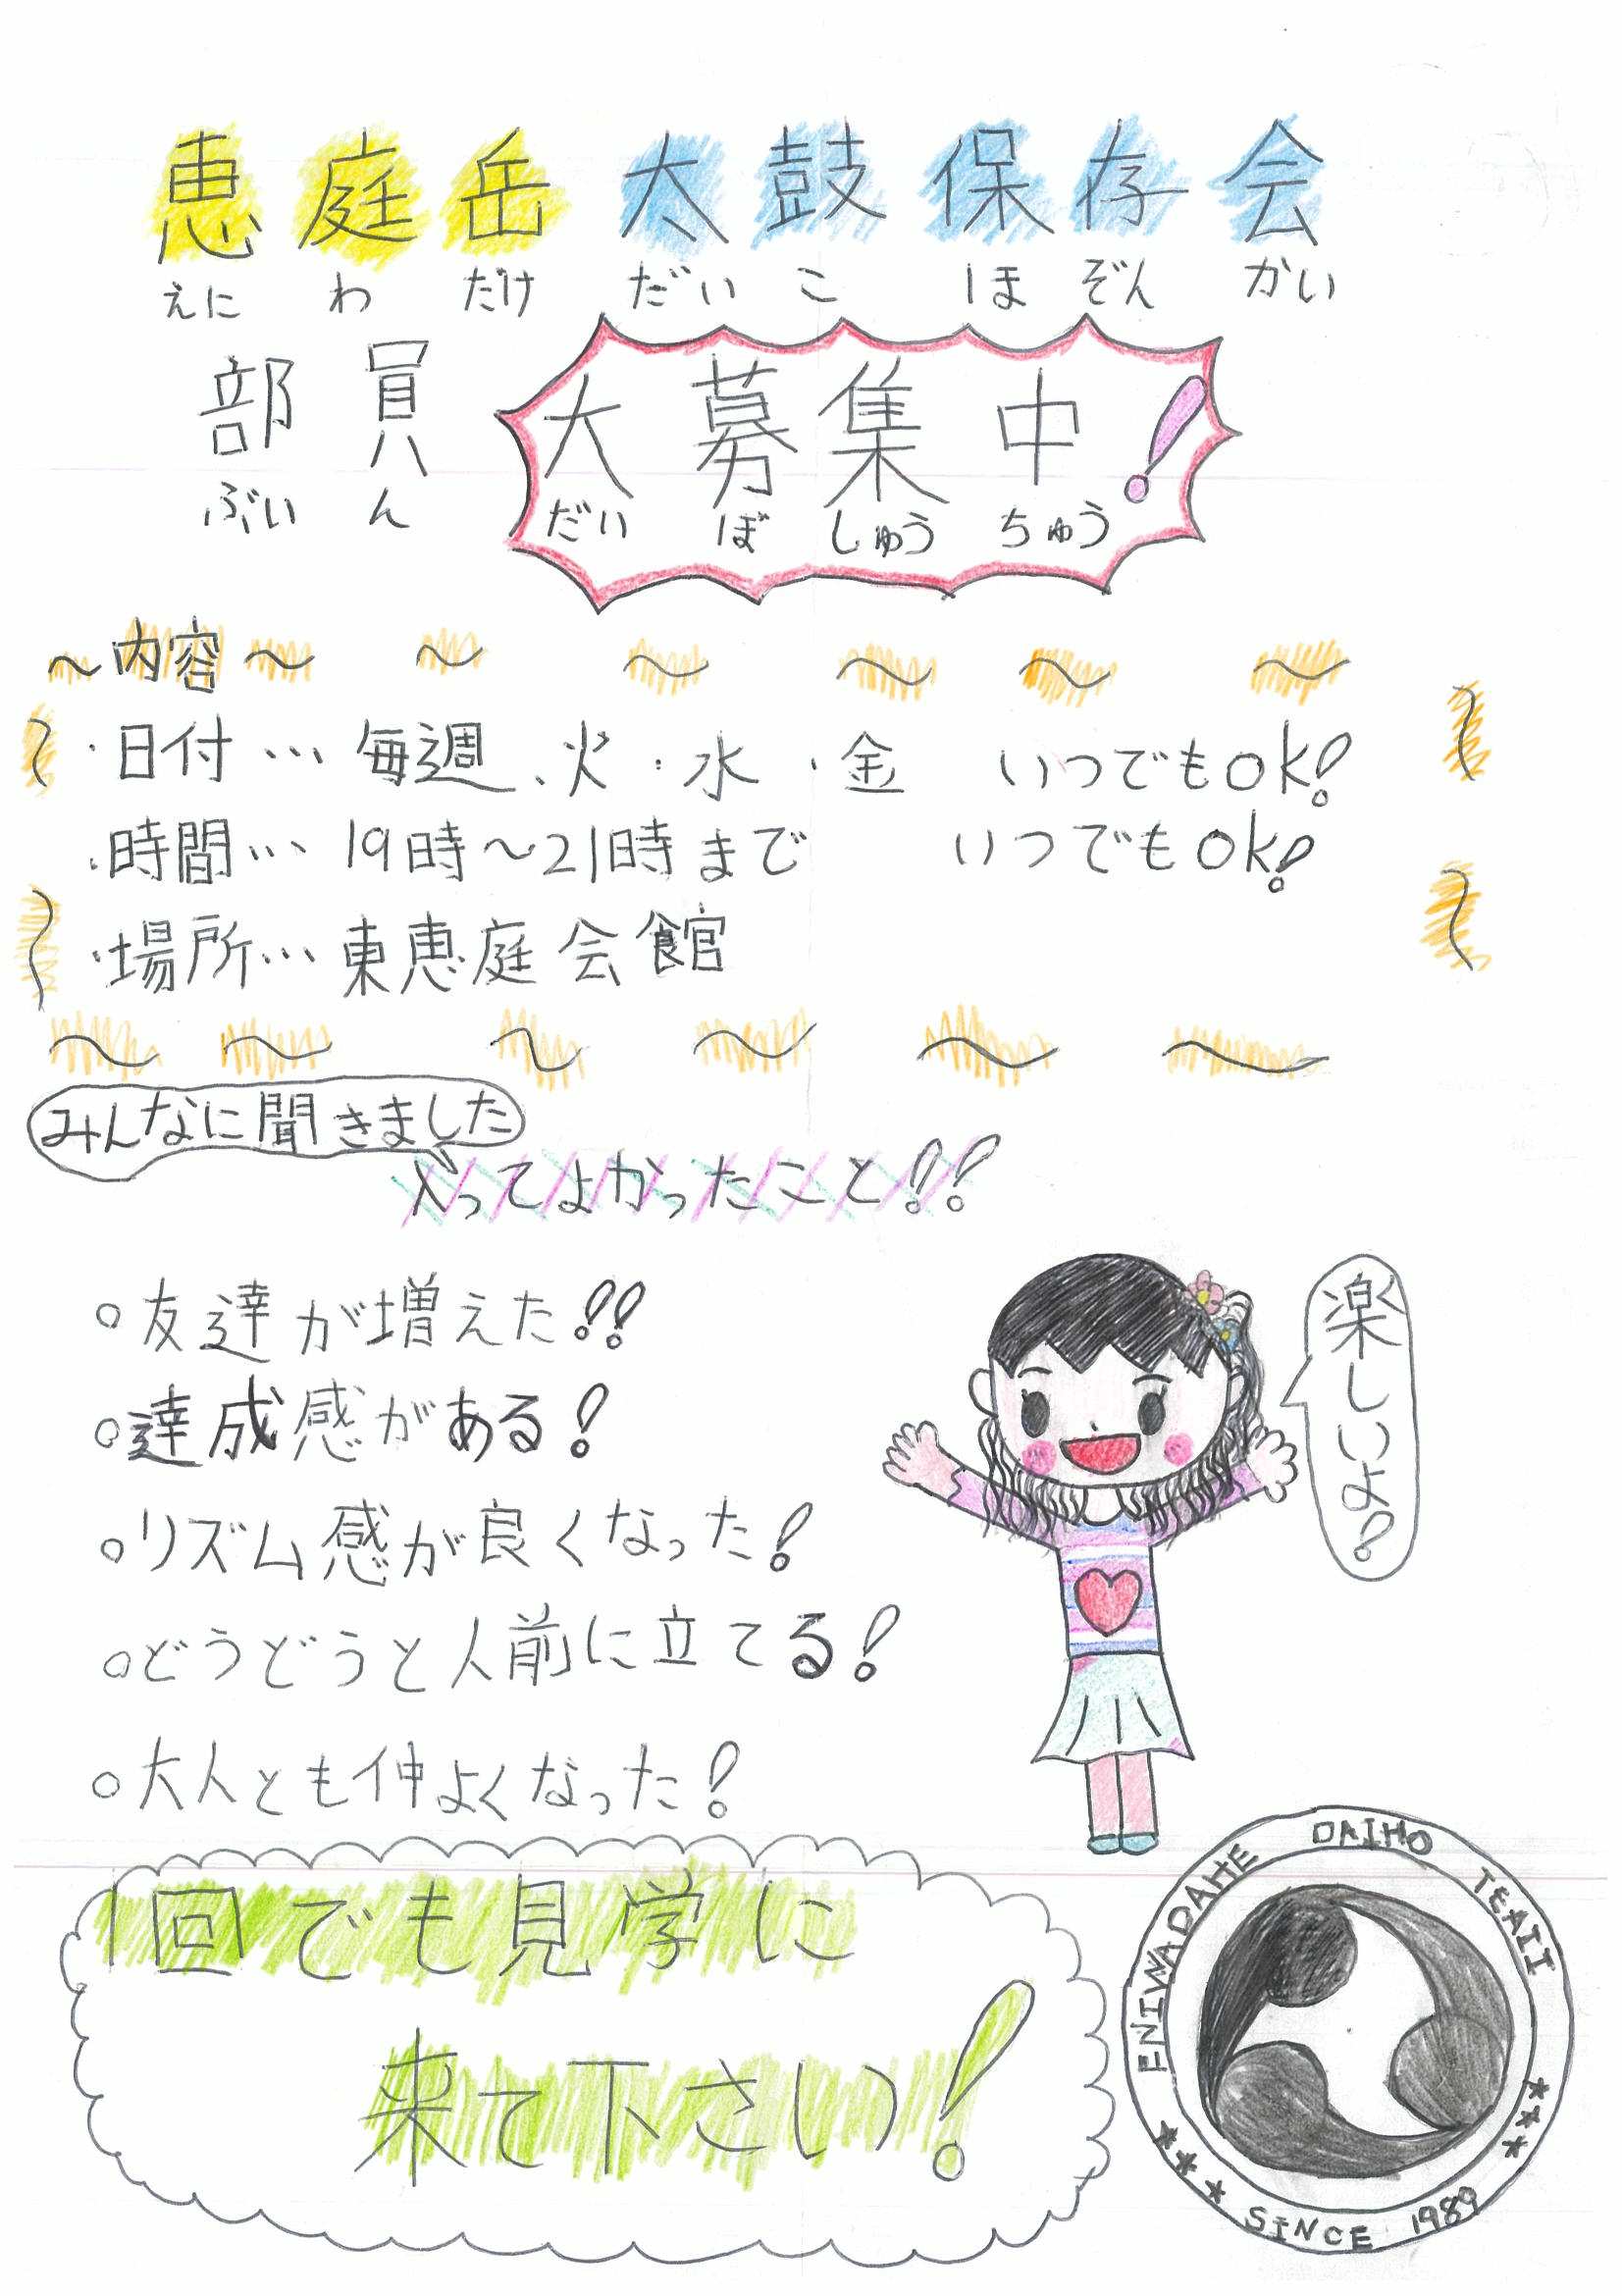 恵庭岳太鼓保存会
えにわだけだいこほぞんかい
部員大募集中!
ぶいんだいぼしゅうちゅう
～内容～
・日付…毎週、火・水・金 いつでもok!
・時間…19時～21時まで いつでもok!
・場所…東恵庭会館
みんなに聞きました
入ってよかったこと!!
○友達が増えた!!
○達成感がある!
○リズム感が良くなった!
○どうどうと人前に立てる!
○大人とも仲よくなった!
楽しいよ!
1回でも見学に
来て下さい!
ENIWADAHE DAIHO TEAII
★★★ SINCE 1989 ★★★